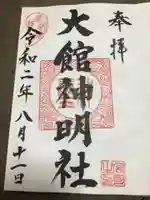 奉拝
大館神明社
令和二年八月十一日